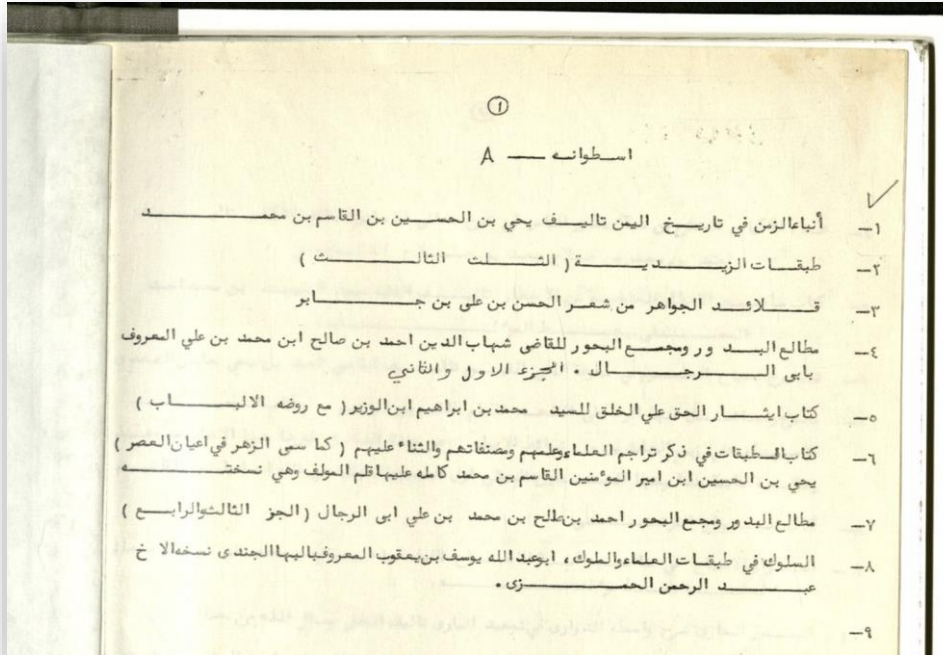 ١
اسطوانه — A
١— أنباءالزمن في تاريخ اليمن تاليف يحي بن الحسين بن القاسم بن محمد
٢— طبقات الزيديية ( الثلث الثالث )
٣— قلائد الجواهر من شعر الحسن بن على بن جابر
٤— مطالع البدور ومجمع البحور للقاضى شهاب الدين احمد بن صالح ابن محمد بن علي المعروف
بابى الرجال . الجزء الاول والثاني
٥— كتاب ايثار الحق علي الخلق للسيد محمد بن ابراهيم ابن الوزير ( مع روضه الالباب )
٦— كتاب الطبقات في ذكر تراجم العلماء وعلمهم ومصنفاتهم والثناء عليهم ( كما سمى الزهر في اعيان العصر )
يحي بن الحسين ابن امير الموءمنين القاسم بن محمد كامله عليها قلم المولف وهي نسخته
٧— مطالع البدور ومجمع البحور احمد بن طالح بن محمد بن علي ابى الرجال ( الجز الثالث والرابع )
٨— السلوك في طبقات العلماء والملوك ، ابوعبد الله يوسف بن يعقوب المعروف باليها الجندى نسخه الاخ
عبد الرحمن الحمزى .
٩—